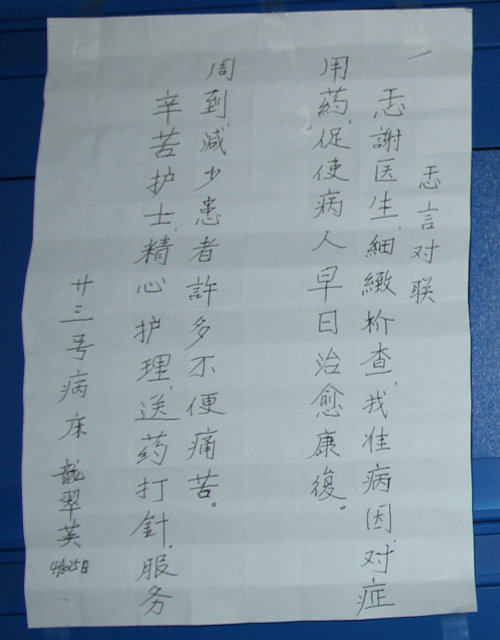 忎言对联
忎謝医生,細緻检查,找准病因,对症
用药,促使病人早日治愈康復。
辛苦护士,精心护理,送药打針,服务
周到,减少患者許多不便痛苦。
廿三号病床 龍翠英
4月25日